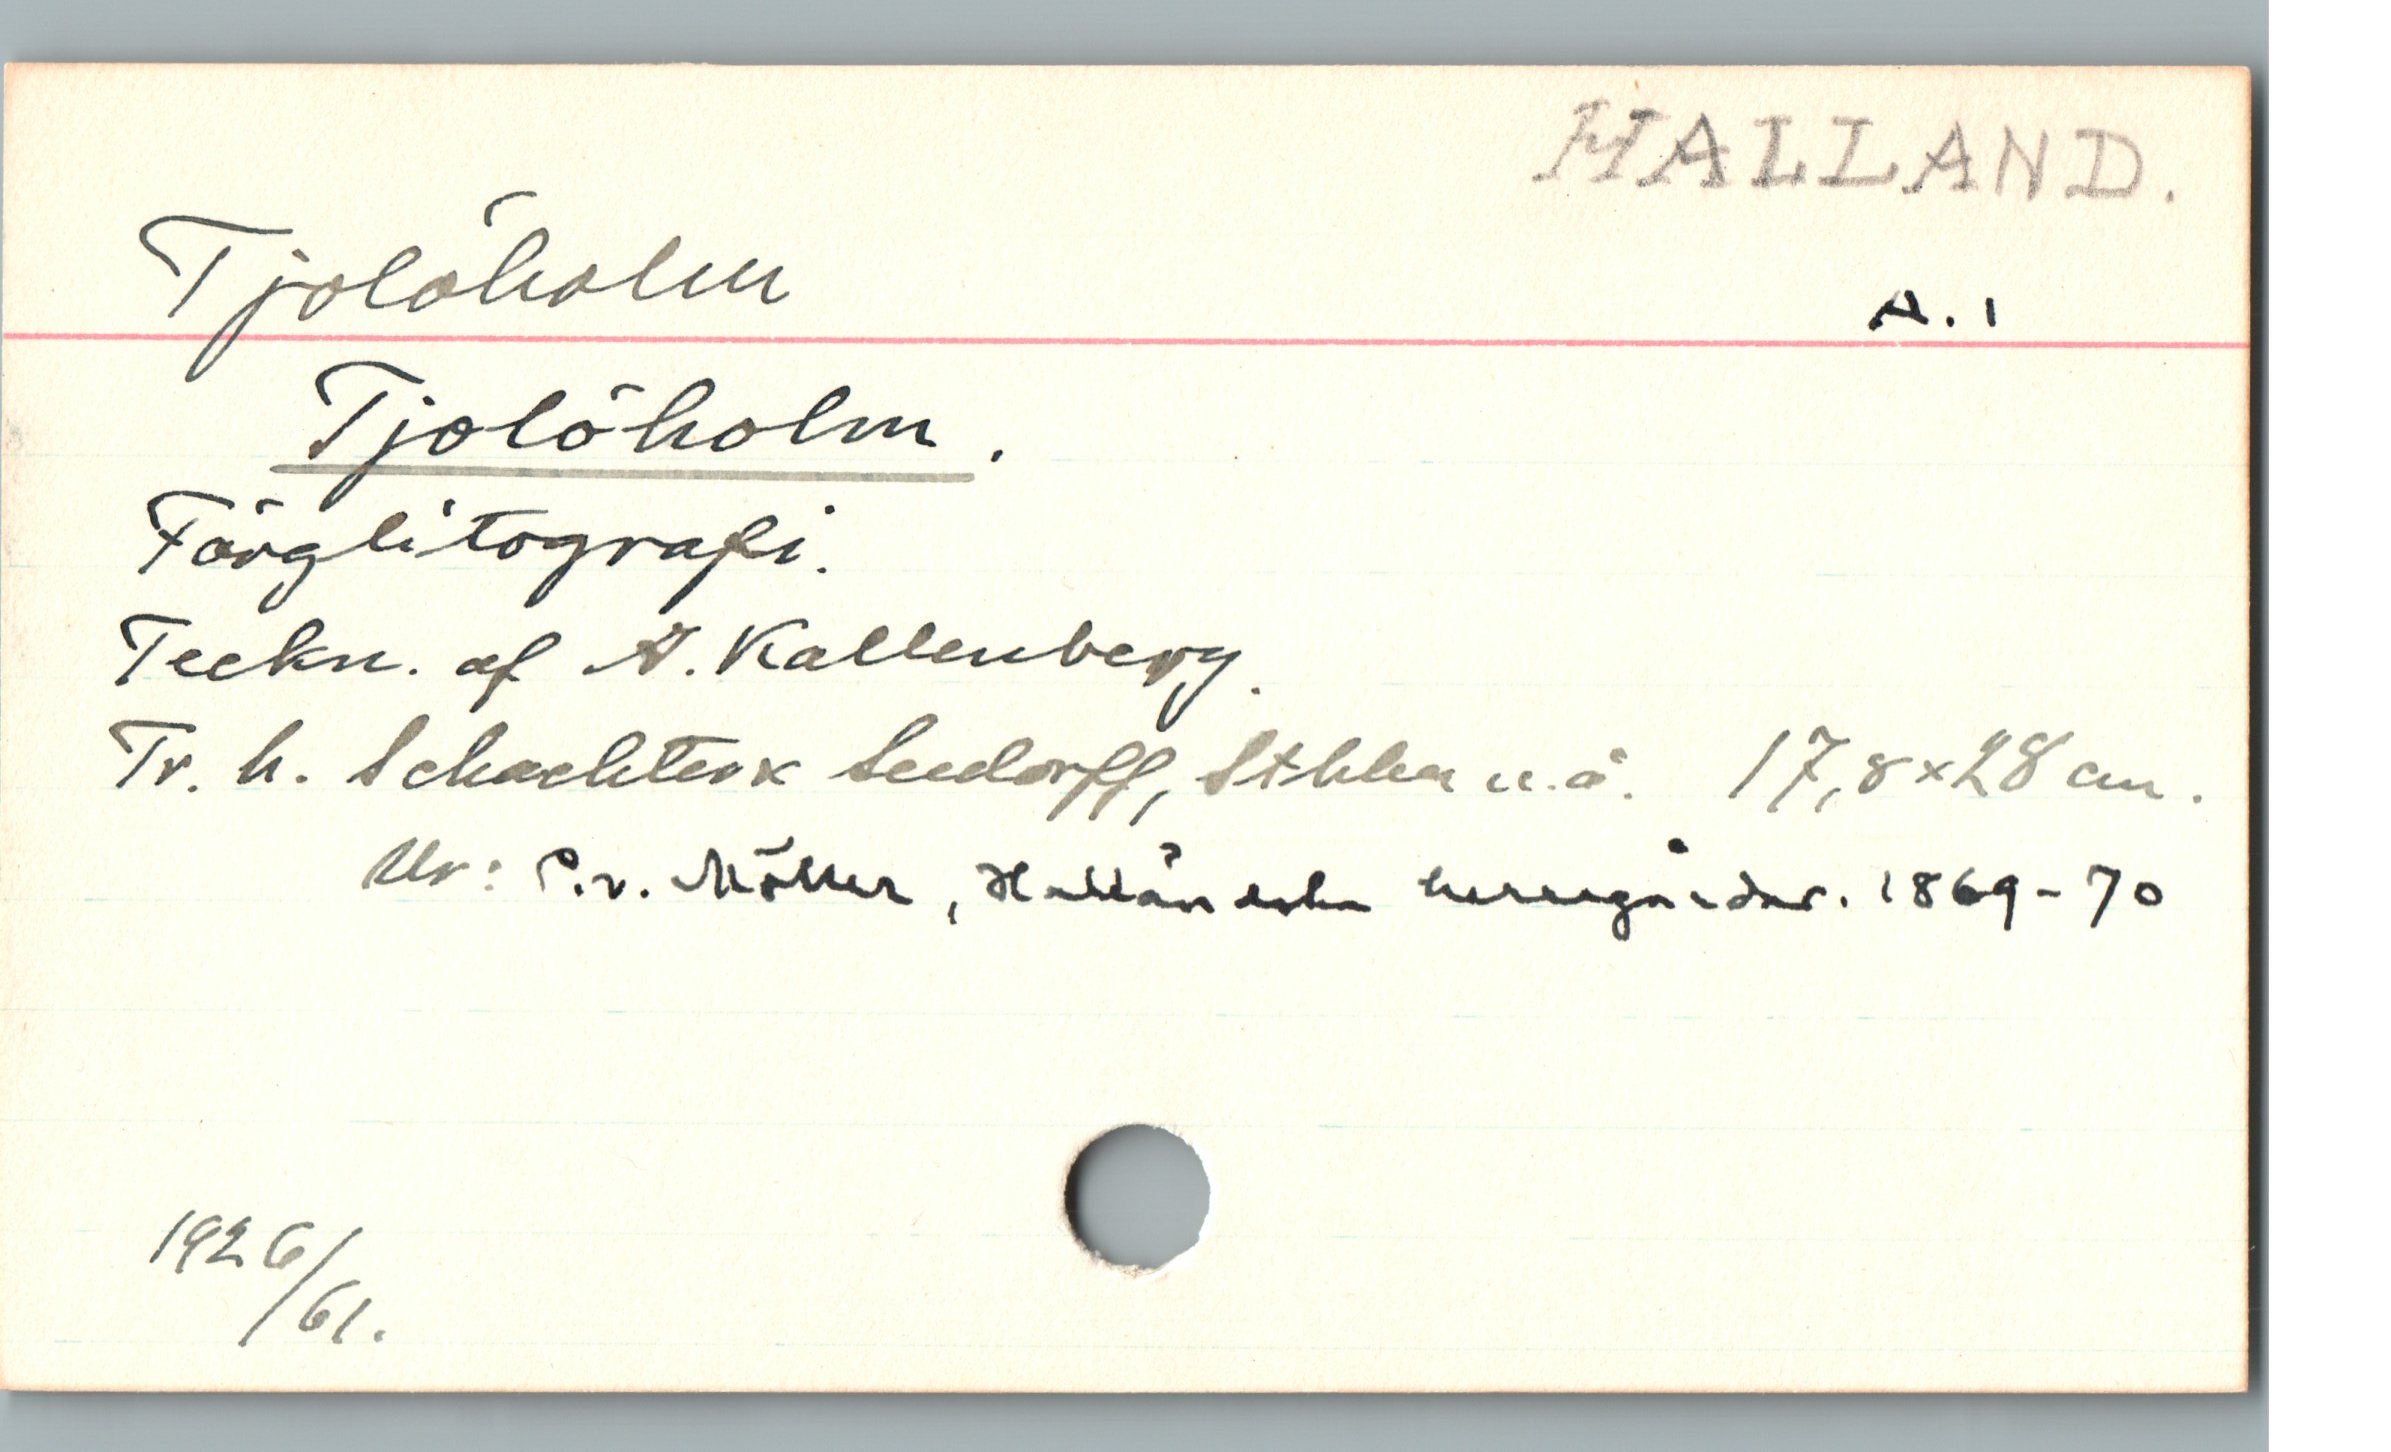 HALLAND.
Tjolöholm
A. 1
Tjolöholm.
Färglitografi.
Teckn. af A. Kallenberg.
Tr. h. Schachter & Seedorff, Sthlm u.å. 17,8 x 28 cm.
Ur: P. v. Möller, Halländska herregårdar. 1869-70
1926/
61.